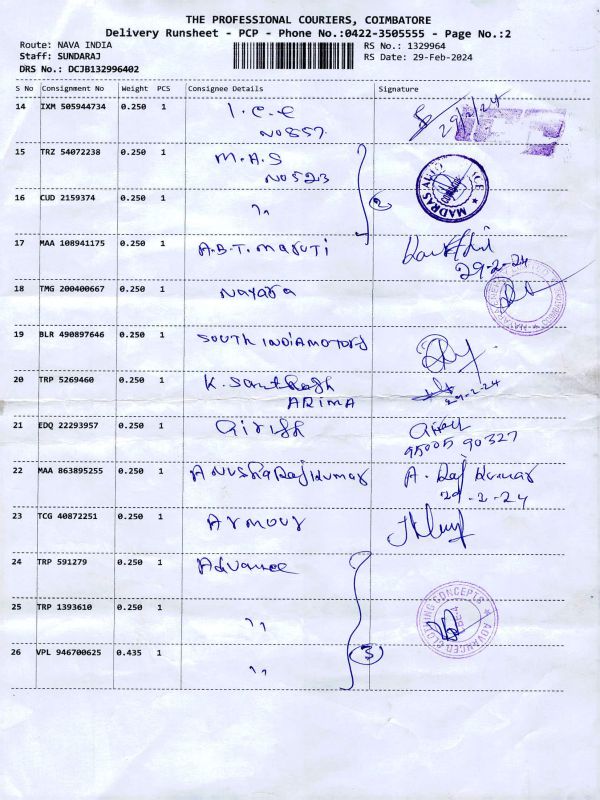 THE PROFESSIONAL COURIERS, COIMBATORE
Delivery Runsheet - PCP - Phone No.:0422-3505555 - Page No.:2
Route: NAVA INDIA RS No.: 1329964
Staff: SUNDARAJ RS Date: 29-Feb-2024
DRS No.: DCJB132996402
S No Consignment No Weight PCS Consignee Details Signature
14 IXM 505944734 0.250 1 I.C.E 29/2/24
NO 857
15 TRZ 54072238 0.250 1 M.A.S
NO 523
MADRAS AUTO
16 CUD 2159374 0.250 1 " 2
17 MAA 108941175 0.250 1 A.B.T. maruti
29-2-24
18 TMG 200400667 0.250 1 Nayara
19 BLR 490897646 0.250 1 SOUTH INDIA MOTORS
20 TRP 5269460 0.250 1 K. Santhosh
ARIMA 29-2-24
21 EDQ 22293957 0.250 1 Girish
95005 90327
22 MAA 863895255 0.250 1 Anusha Raj Kumar A. Raj Kumar
29-2-24
23 TCG 40872251 0.250 1 Armour
24 TRP 591279 0.250 1 Advance
25 TRP 1393610 0.250 1 "
ADVANCED FLOORING CONCEPTS
26 VPL 946700625 0.435 1 " 3